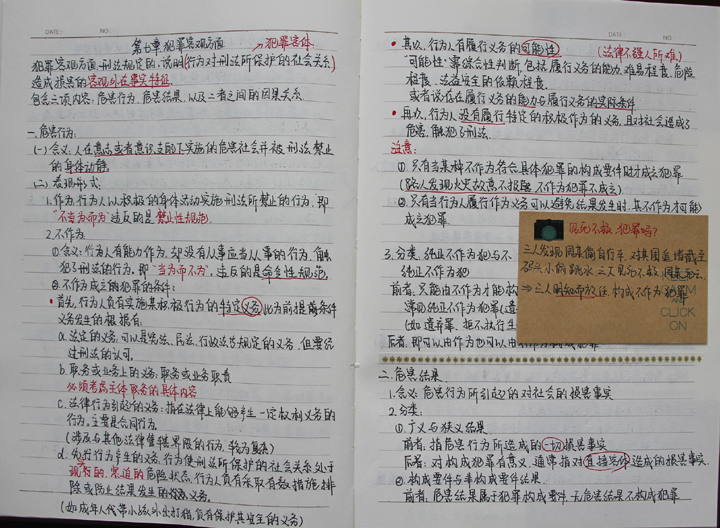 DATE: NO:
第七章 犯罪客观方面 → 犯罪客体
犯罪客观方面:刑法规定的,说明(行为对刑法所保护的社会关系)
造成损害的客观外在事实特征.
包含三项内容:危害行为、危害结果,以及二者之间的因果关系.
一.危害行为:
(一)含义:人在意志或者意识支配下实施的危害社会并被刑法禁止
的身体动静
(二)表现形式:
1.作为:行为人以积极的身体活动实施刑法所禁止的行为,即
"不当为而为"违反的是禁止性规范.
2.不作为
①含义:行为人有能力作为,却没有从事应当从事的行为,触
犯了刑法的行为.即"当为而不为",违反的是命令性规范.
②不作为成立的犯罪的条件:
首先,行为人负有实施某积极行为的特定义务,此为前提条件
义务发生的根据有:
a.法定的义务,可以是宪法、民法、行政法等规定的义务,但要经
过刑法的认可.
b.职务或业务上的义务:职务或业务职责
必须考虑主体职务的具体内容
c.法律行为引起的义务:指在法律上能够产生一定权利义务的
行为,主要是合同行为.
(涉及与其他法律管辖界限的行为,较为复杂)
d.先行行为产生的义务,行为使刑法所保护的社会关系处于
现实的,紧迫的危险状态,行为人负有采取有效措施排
除或防止结果发生的义务.
(如成年人代带小孩外出打猎,负有保护其安全的义务)
DATE: NO:
其次,行为人有履行义务的可能性 (法律不强人所难)
"可能性"靠综合性判断,包括履行义务的能力、难易程度、危险
程度、法益安全的依赖程度.
或者说存在履行义务的能力与履行义务的实际条件
再次,行为人没有履行特定的积极作为的义务,且对社会造成了
危害,触犯了刑法.
注意:
①只有当某种不作为符合具体犯罪的构成要件时才成立犯罪
(路人发现火灾故意不报警,不作为犯罪不成立)
②只有当行为人履行作为义务可以避免结果发生时,其不作为才可能
成立犯罪
3.分类:纯正不作为犯与不
纯正不作为犯
前者:只能由不作为才能构
(如遗弃罪、拒不执行
后者:即可以由作为也可以由
见死不救,犯罪吗?
三人发现周某偷自行车,对其围追堵截至
三人见死不救,周某死亡.
⇒三人明知而放任,构成不作为犯罪
CLICK
ON
二.危害结果
1.含义:危害行为所引起的对社会的损害事实
2.分类:
①广义与狭义结果
前者:指危害行为所造成的一切损害事实
后者:对构成犯罪有意义,通常指对直接客体造成的损害事实.
②构成要件与非构成要件结果
前者:危害结果属于犯罪构成要件,无危害结果不构成犯罪